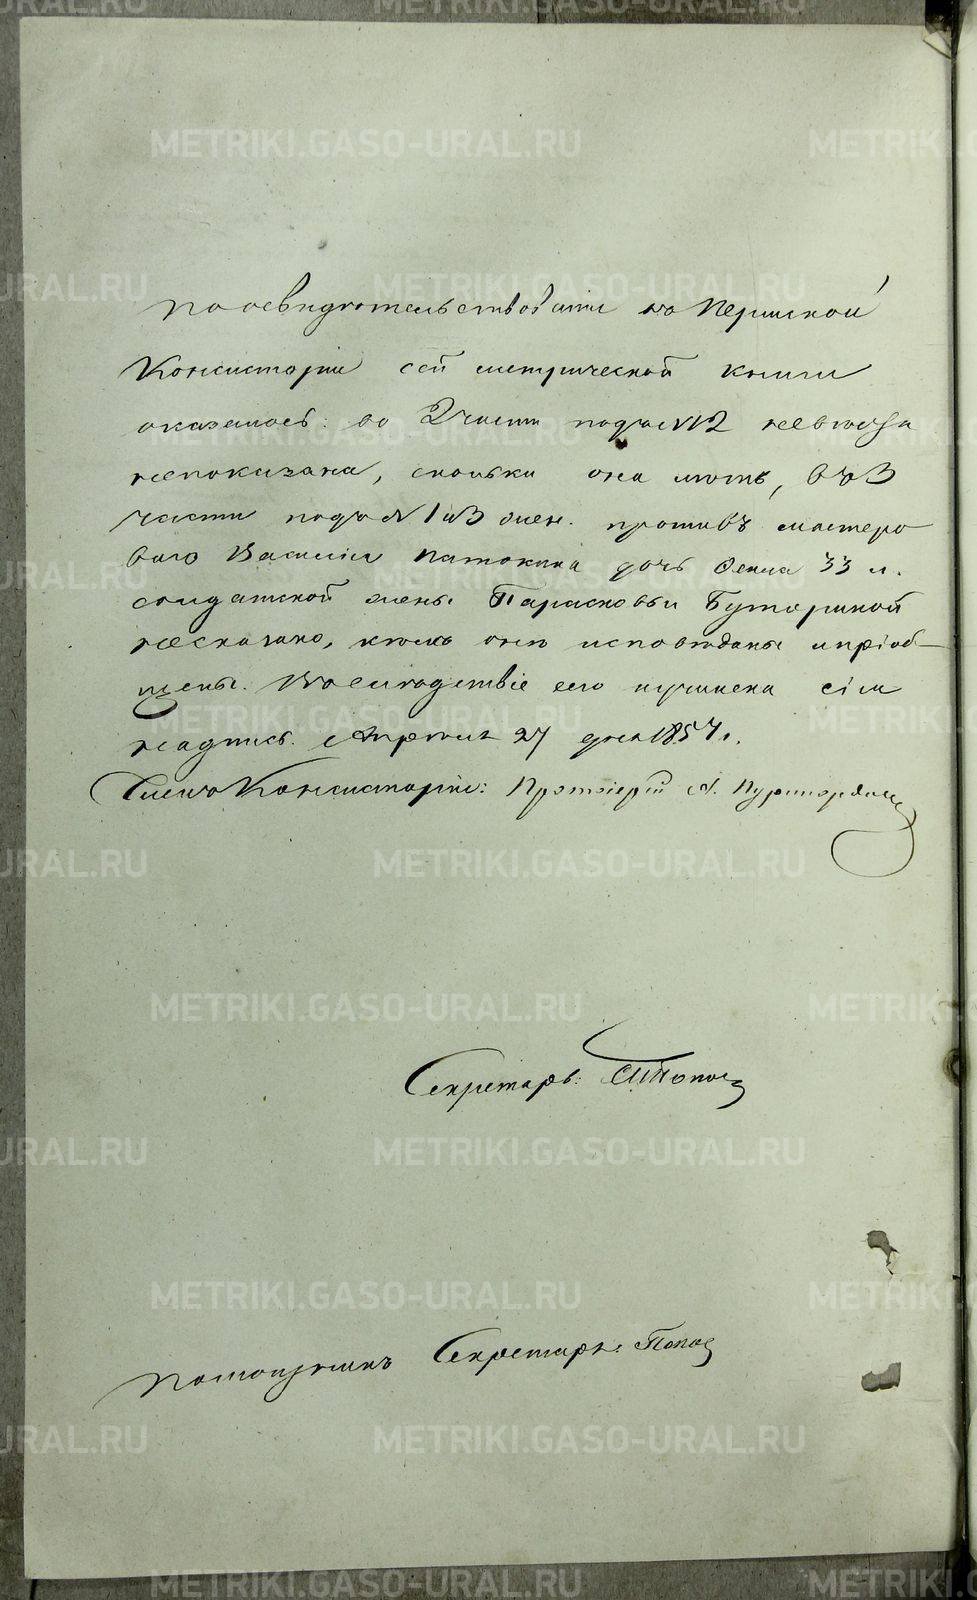 По освидѣтельствованіи въ Пермской
Консисторіи сей метрической книги
оказалось: во 2 части подъ № 12 невѣста
непоказана, сколькихъ она лѣтъ, въ 3
части подъ № 1 и 3 жен. противъ мастеро
ваго Василія дочь 33 л.
солдатской жены Парасковьи Буториной
несказано, кѣмъ онѣ исповѣданы и пріоб-
щены. Вслѣдствіе сего учинена сія
надпись. Апрѣля 27 дня 1857 г.
Членъ Консисторіи: Протоіерей А.
Секретарь: Попов
Помощникъ Секретаря: Попов
METRIKI.GASO-URAL.RU